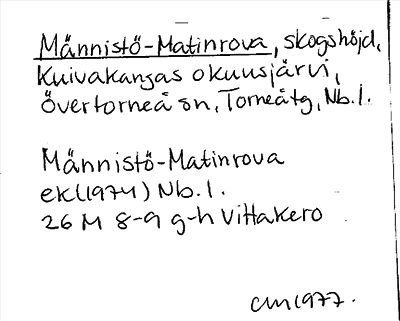 Männistö-Matinrova, skogshöjd,
Kuivakangas o kuusjärvi,
Övertorneå sn, Torneå tg, Nb. l.
Männistö-Matinrova
ek (1974) Nb. l.
26 M 8-9 g-h Vittakero
CM 1977.